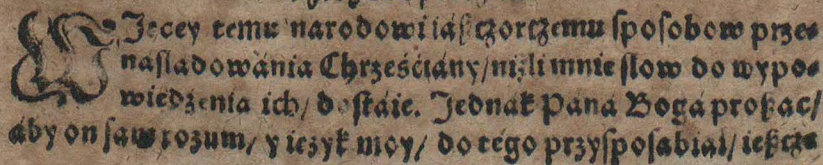 WJęcey temu narodowi iaßczorczemu ſpoſobow prze-
naſladowánia Chrześćiány/ niżli mnie ſlow do wypo-
wiedzenia ich/ doſtáie. Jednák Páná Bogá proßąc/
áby on ſam rozum/ y ięzyk moy/ do tego przyſpoſabiał/ ießcze